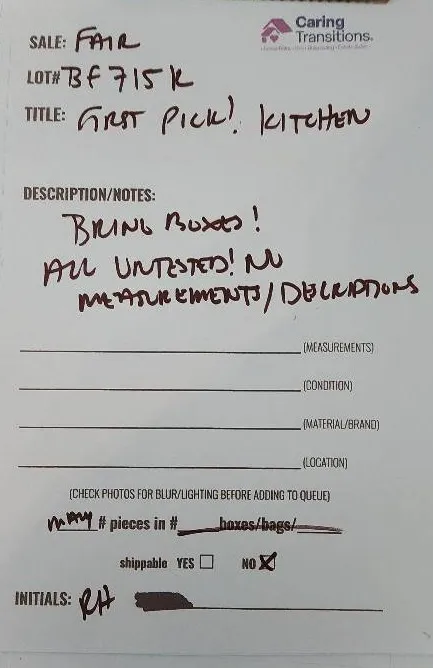 Caring
Transitions.
SALE: FAIR
LOT# BF715K
TITLE: FIRST PICK! KITCHEN
DESCRIPTION/NOTES:
BRING BOXES!
ALL UNTESTED! NO
MEASUREMENTS/DESCRIPTIONS
(MEASUREMENTS)
(CONDITION)
(MATERIAL/BRAND)
(LOCATION)
(CHECK PHOTOS FOR BLUR/LIGHTING BEFORE ADDING TO QUEUE)
MANY # pieces in # boxes/bags/
shippable YES ☐ NO ☒
INITIALS: RH